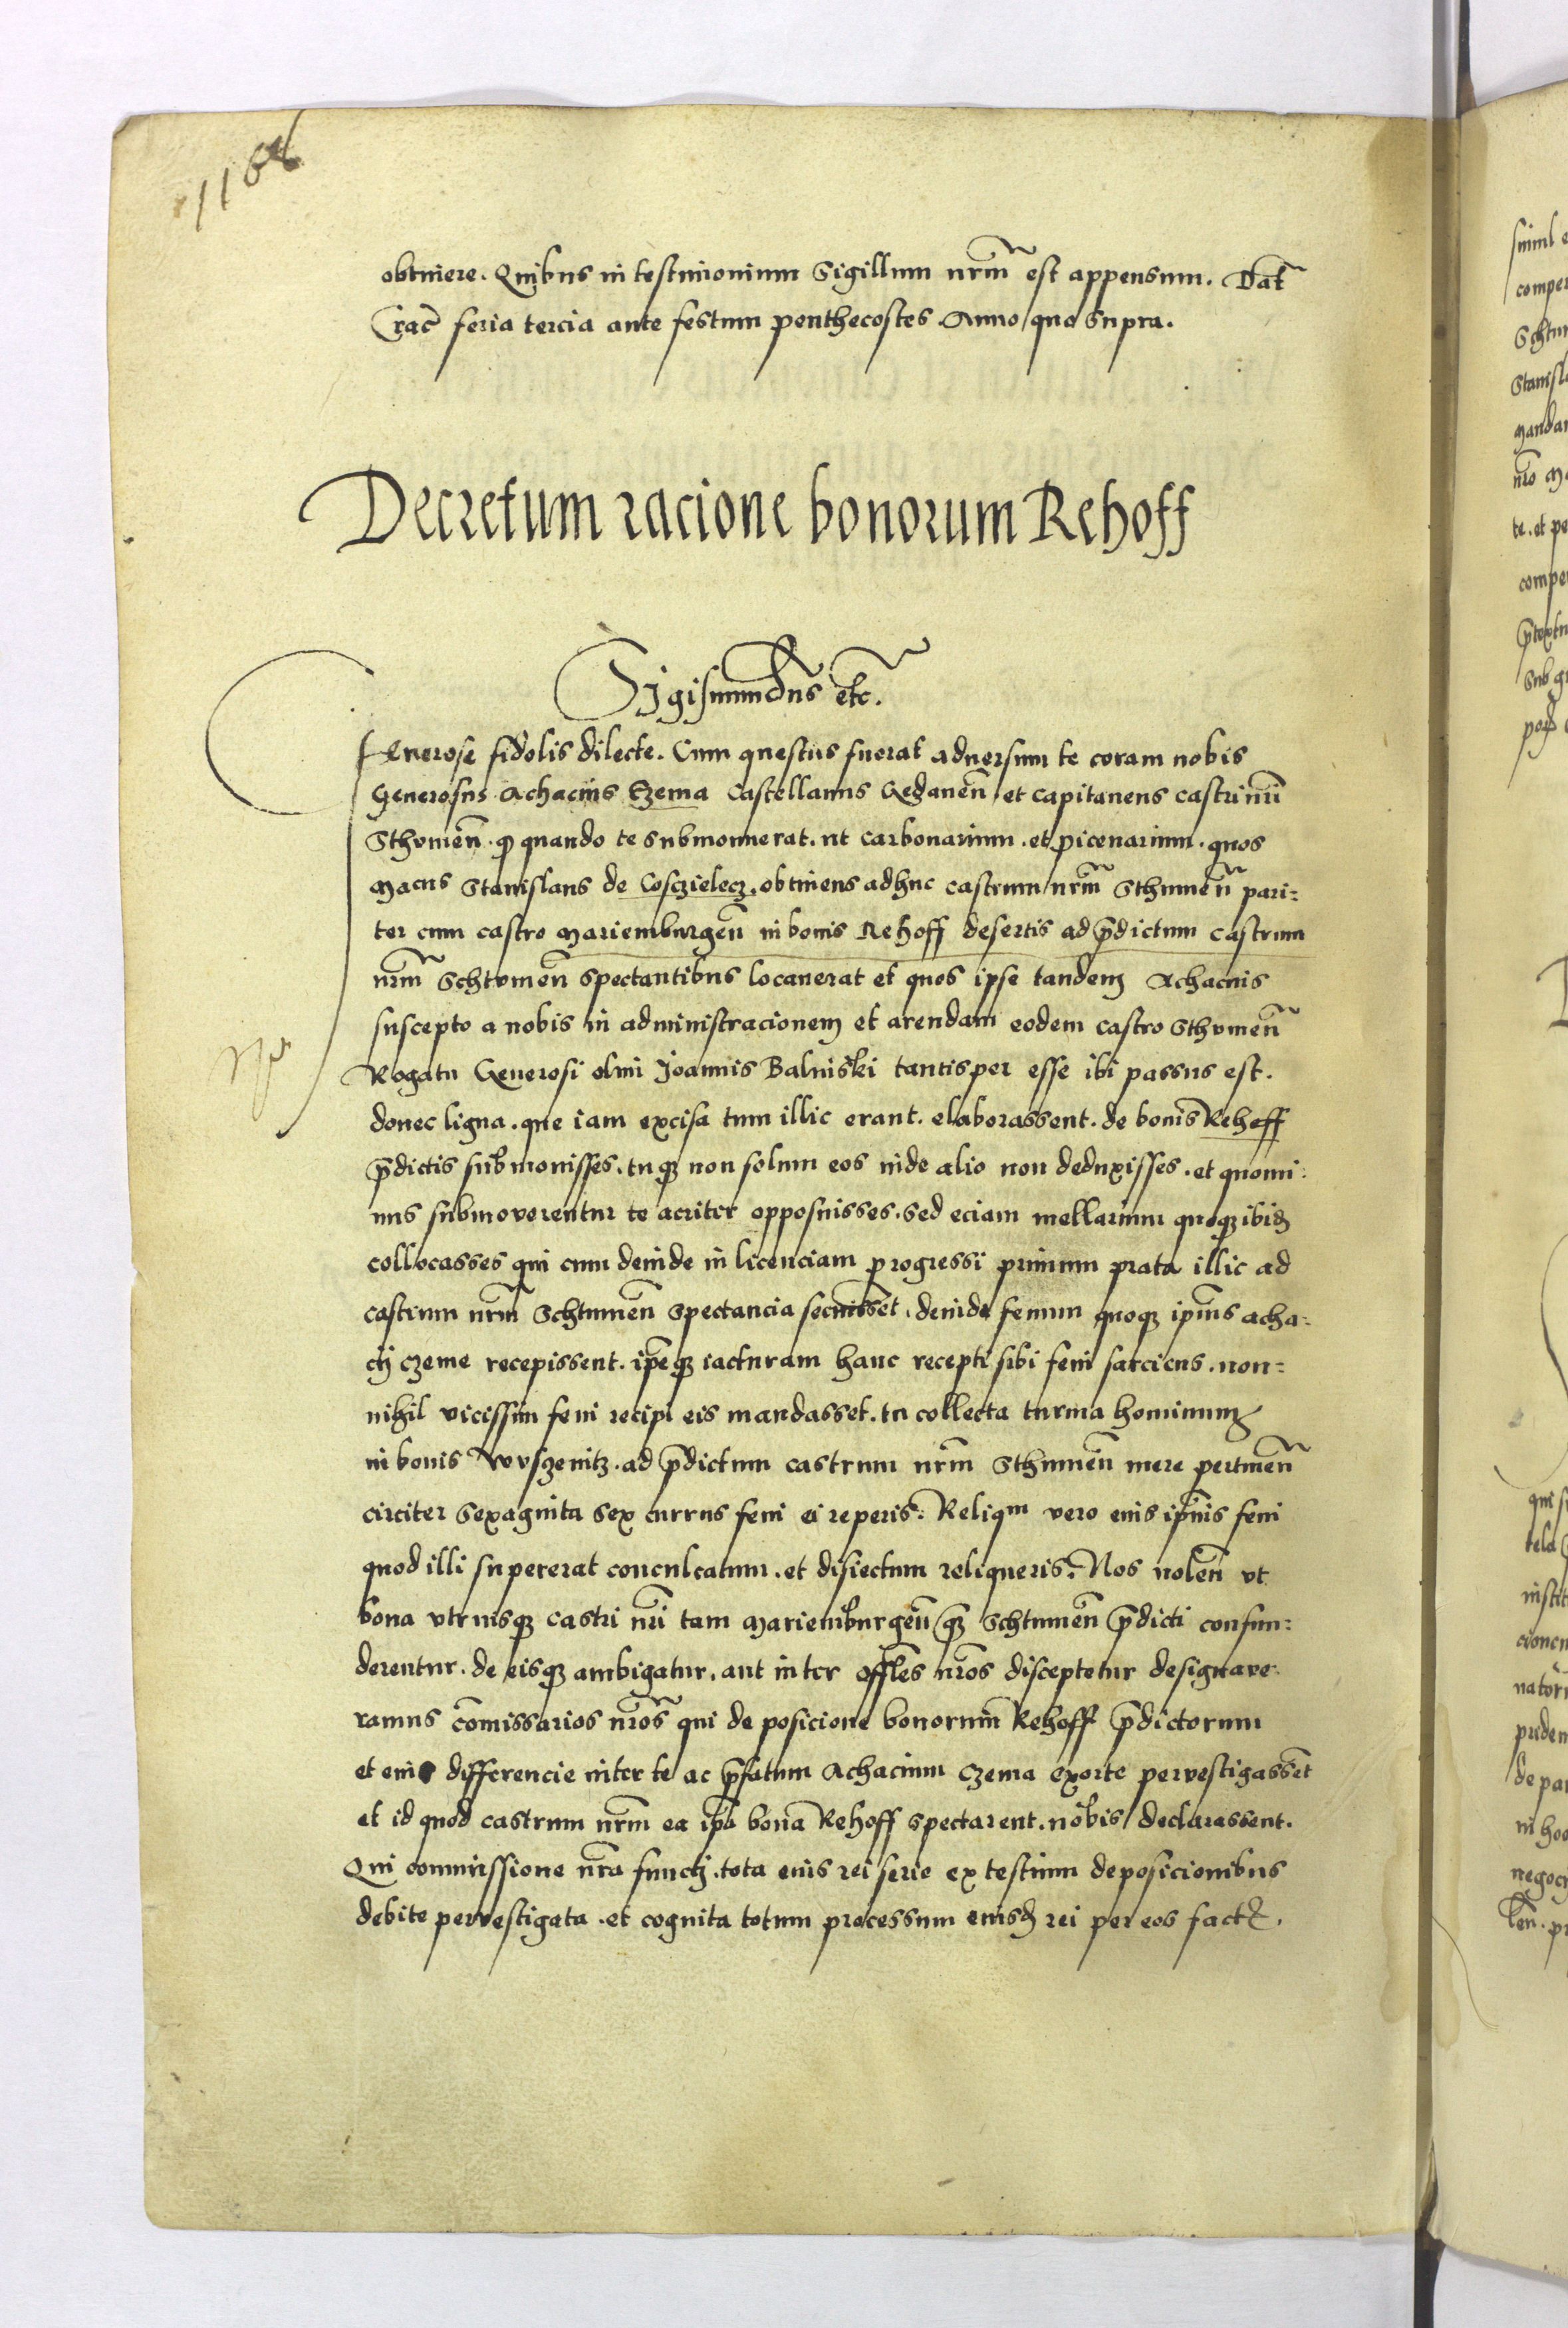 1168
obtinere. Quibus in testimonium Sigillum nrm̃ est appensum. Dat̃
Crac̃ feria tercia ante festum penthecostes Anno quo supra.
Decretum racione bonorum Rehoff
Sigismundus etc.
Generose fidelis dilecte. Cum questus fuerat adversum te coram nobis
Generosus Achacius Czema Castellanus Gedanen̄ et capitaneus castri nr̃i
Sthumen̄. ꝙ quando te submonuerat. ut carbonarium. et picenarium. quos
Mgcus Stanislaus de Cosczielecz. obtinens adhuc castrum nrm̃ Sthumen̄ pari=
ter cum castro Mariemburgen̄ in bonis Rehoff desertis ad p̄dictum castrum
nrm̃ Schtumen̄ spectantibus locaverat et quos ipse tandem Achacius
suscepto a nobis in administracionem et arendam eodem castro Sthumen̄
Rogatu Generosi olim Joannis Balinski tantisper esse ibi passus est.
donec ligna. que iam excisa tum illic erant. elaborassent. de bonis Rehoff
p̄dictis submonisses. tuqꝫ non solum eos inde alio non deduxisses. et quomi=
nus submoverentur te acriter opposuisses. Sed eciam mellarium quoqꝫ ibid̃
collocasses qui cum deinde in licenciam progressi primum prata illic ad
castrum nrm̃ Schtumen̄ spectancia secuissent. deinde fenum quoqꝫ ip̄ius Acha=
cij Czeme recepissent. ip̄eqꝫ iacturam hanc recepti sibi feni sarciens. non=
nihil vicissim feni recipi eis mandasset. tu collecta turma hominum
in bonis Wuszenitz. ad p̄dictum castrum nrm̃ Sthumen̄ mere pertinen̄
circiter sexaginta sex currus feni ei reperis. Reliqm vero eius ip̄ius feni
quod illi supererat conculcatum. et disiectum reliqueris. Nos nolen̄ ut
bona utriusqꝫ castri nr̃i tam Mariemburgen̄ qꝫ Schtumen̄ p̄dicti confun=
derentur. de eisqꝫ ambigatur. aut inter offles nr̃os disceptetur designave=
ramus com̄issarios nr̃os qui de posicione bonorum Rehoff p̄dictorum
et eius differencie inter te ac p̄fatum Achacium Czema exorte pervestigassent
et id quod castrum nrm̃ ea ip̄a bona Rehoff spectarent. nobis declarassent.
Qui commissione nr̃a functi. tota eius rei serie ex testium deposicionibus
debite pervestigata. et cognita totum processum eiusd̃ rei per eos fact̃.